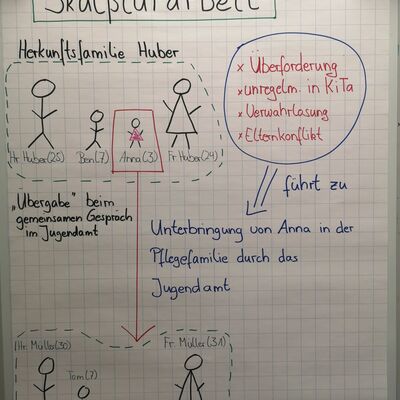 Skulpturarbeit
Herkunftsfamilie Huber
Hr. Huber (25)
Ben (7)
Anna (3)
Fr. Huber (24)
x Überforderung
x unregelm. in KiTa
x Verwahrlosung
x Elternkonflikt
führt zu
„Übergabe" beim
gemeinsamen Gespräch
im Jugendamt
Unterbringung von Anna in der
Pflegefamilie durch das
Jugendamt
Hr. Müller (30)
Fr. Müller (31)
Tom (7)